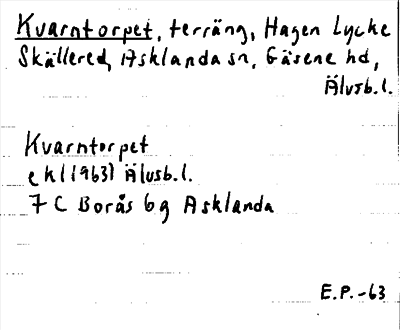 Kvarntorpet, terräng, Hagen Lycke
Skällered, Asklanda sn, Gäsene hd,
Älvsb.l.
Kvarntorpet
ek(1963) Älvsb.l.
7 C Borås 6g Asklanda
E.P.-63